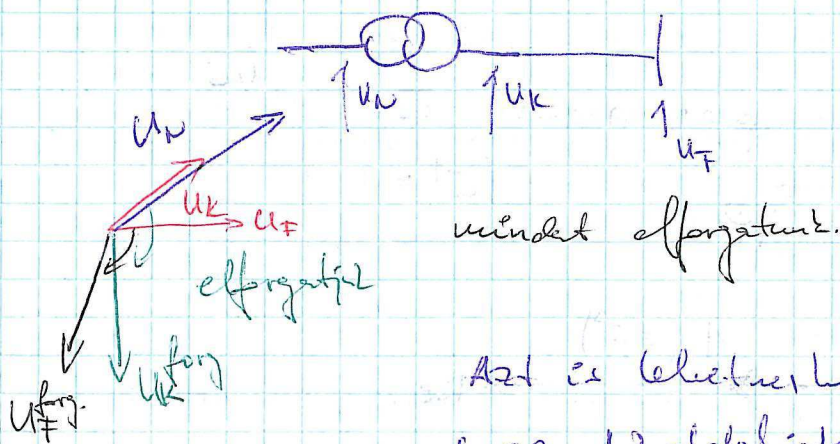 U_N U_K U_F
U_N
U_K U_F
mindent elforgatunk.
elforgatjuk
U_K^forg
U_F^forg.
Azt is lehetne